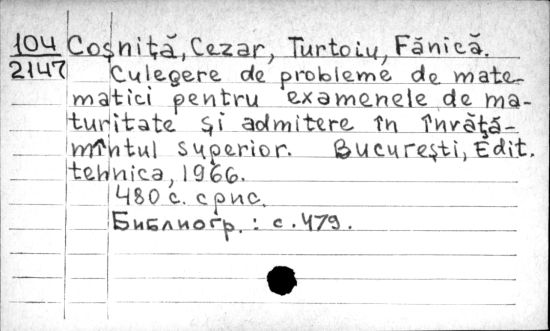 104 Coșniță, Cezar, Turtoiu, Fănică.
2147 Culegere de probleme de mate-
matici pentru examenele de ma-
turitate și admitere în învăţă-
mîntul superior. București, Edit.
tehnica, 1966.
480 с. с рис.
Библиогр.: с. 479.